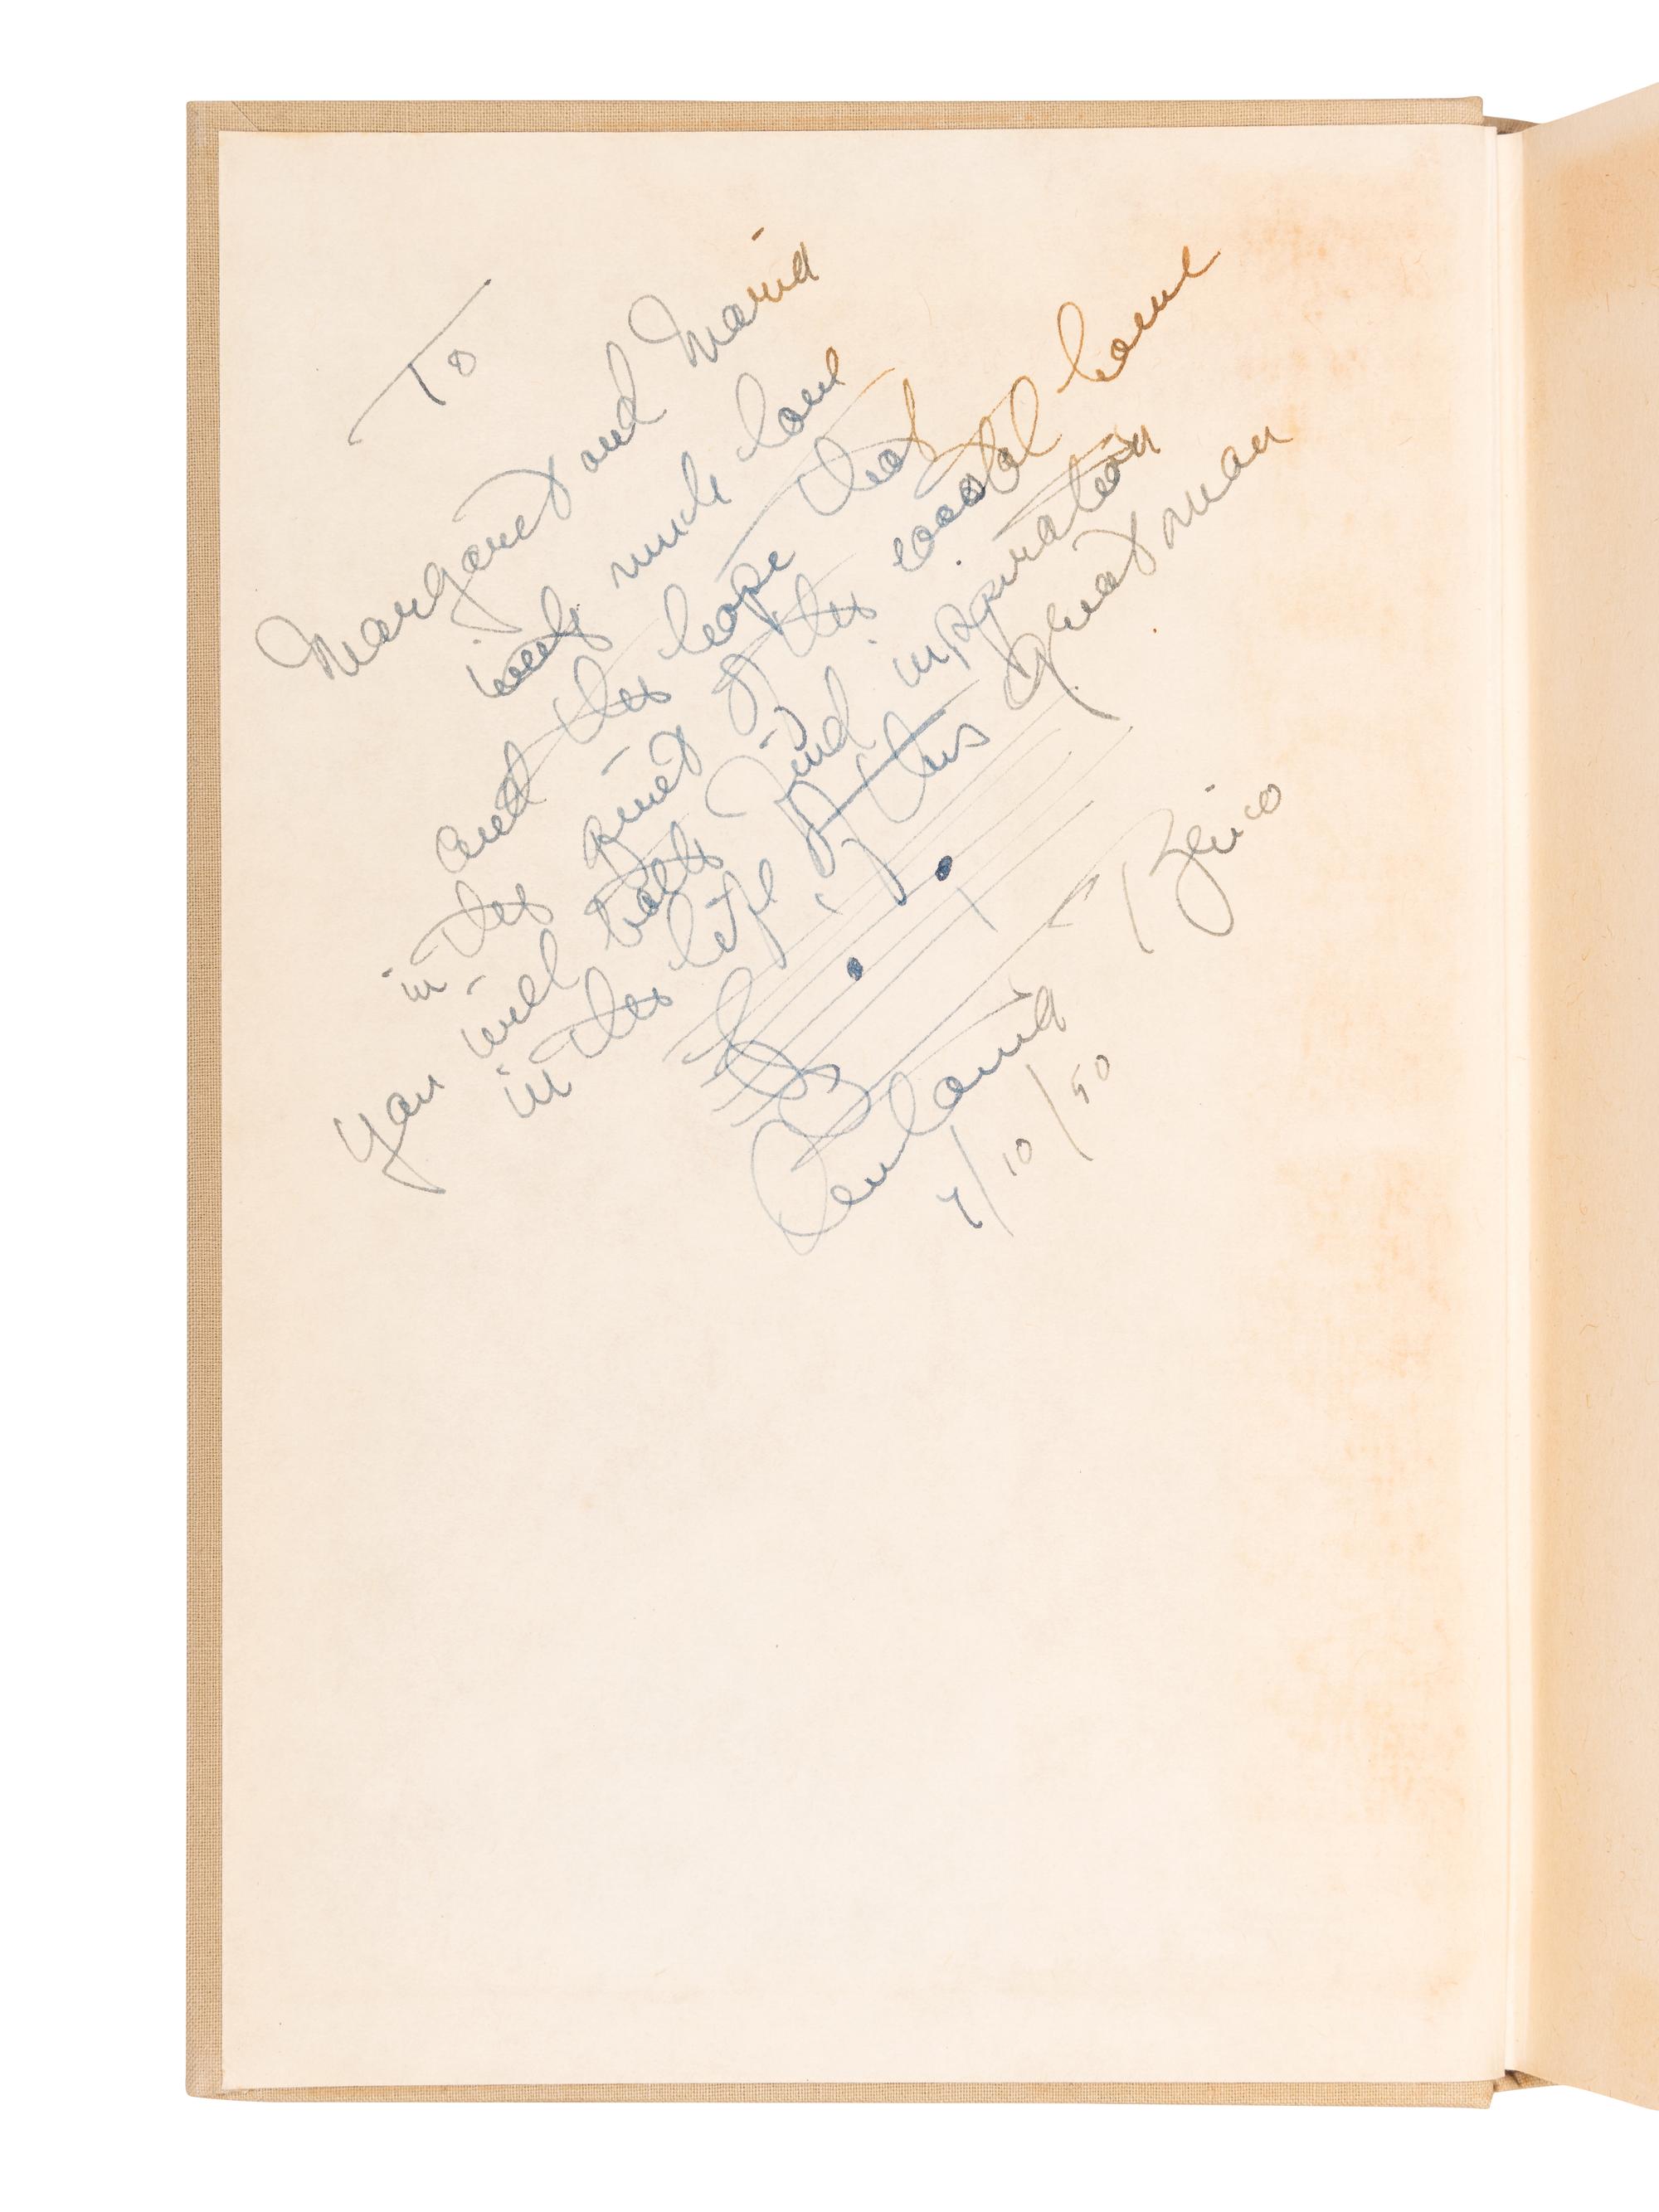 To
Margaret and Maria
with much love
and the hope that
in the quiet of the coastal home
you will both find inspiration
in the life of this great man
7/10/50